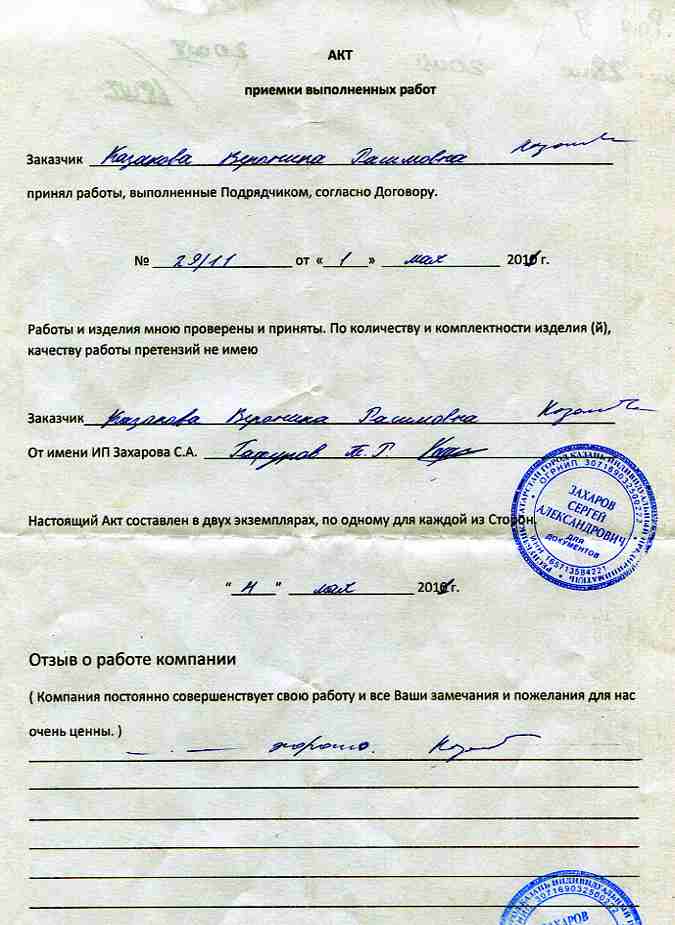 АКТ
приемки выполненных работ
Заказчик Казакова Вероника Рашмовна
принял работы, выполненные Подрядчиком, согласно Договору.
№ 29/11 от «1» мая 2011 г.
Работы и изделия мною проверены и приняты. По количеству и комплектности изделия (й),
качеству работы претензий не имею
Заказчик Казакова Вероника Рашмовна
От имени ИП Захарова С.А. Гафуров Т.Г.
Настоящий Акт составлен в двух экземплярах, по одному для каждой из Сторон.
РЕСПУБЛИКА ТАТАРСТАН ГОРОД КАЗАНЬ ИНДИВИДУАЛЬНЫЙ ПРЕДПРИНИМАТЕЛЬ
ОГРНИП 307169032500222
ЗАХАРОВ
СЕРГЕЙ
АЛЕКСАНДРОВИЧ
ДЛЯ
ДОКУМЕНТОВ
ИНН 165713584221
" " мая 201 г.
Отзыв о работе компании
( Компания постоянно совершенствует свою работу и все Ваши замечания и пожелания для нас
очень ценны. )
хорошо.
ГОРОД КАЗАНЬ ИНДИВИДУАЛЬНЫЙ
307169032500222
ЗАХАРОВ